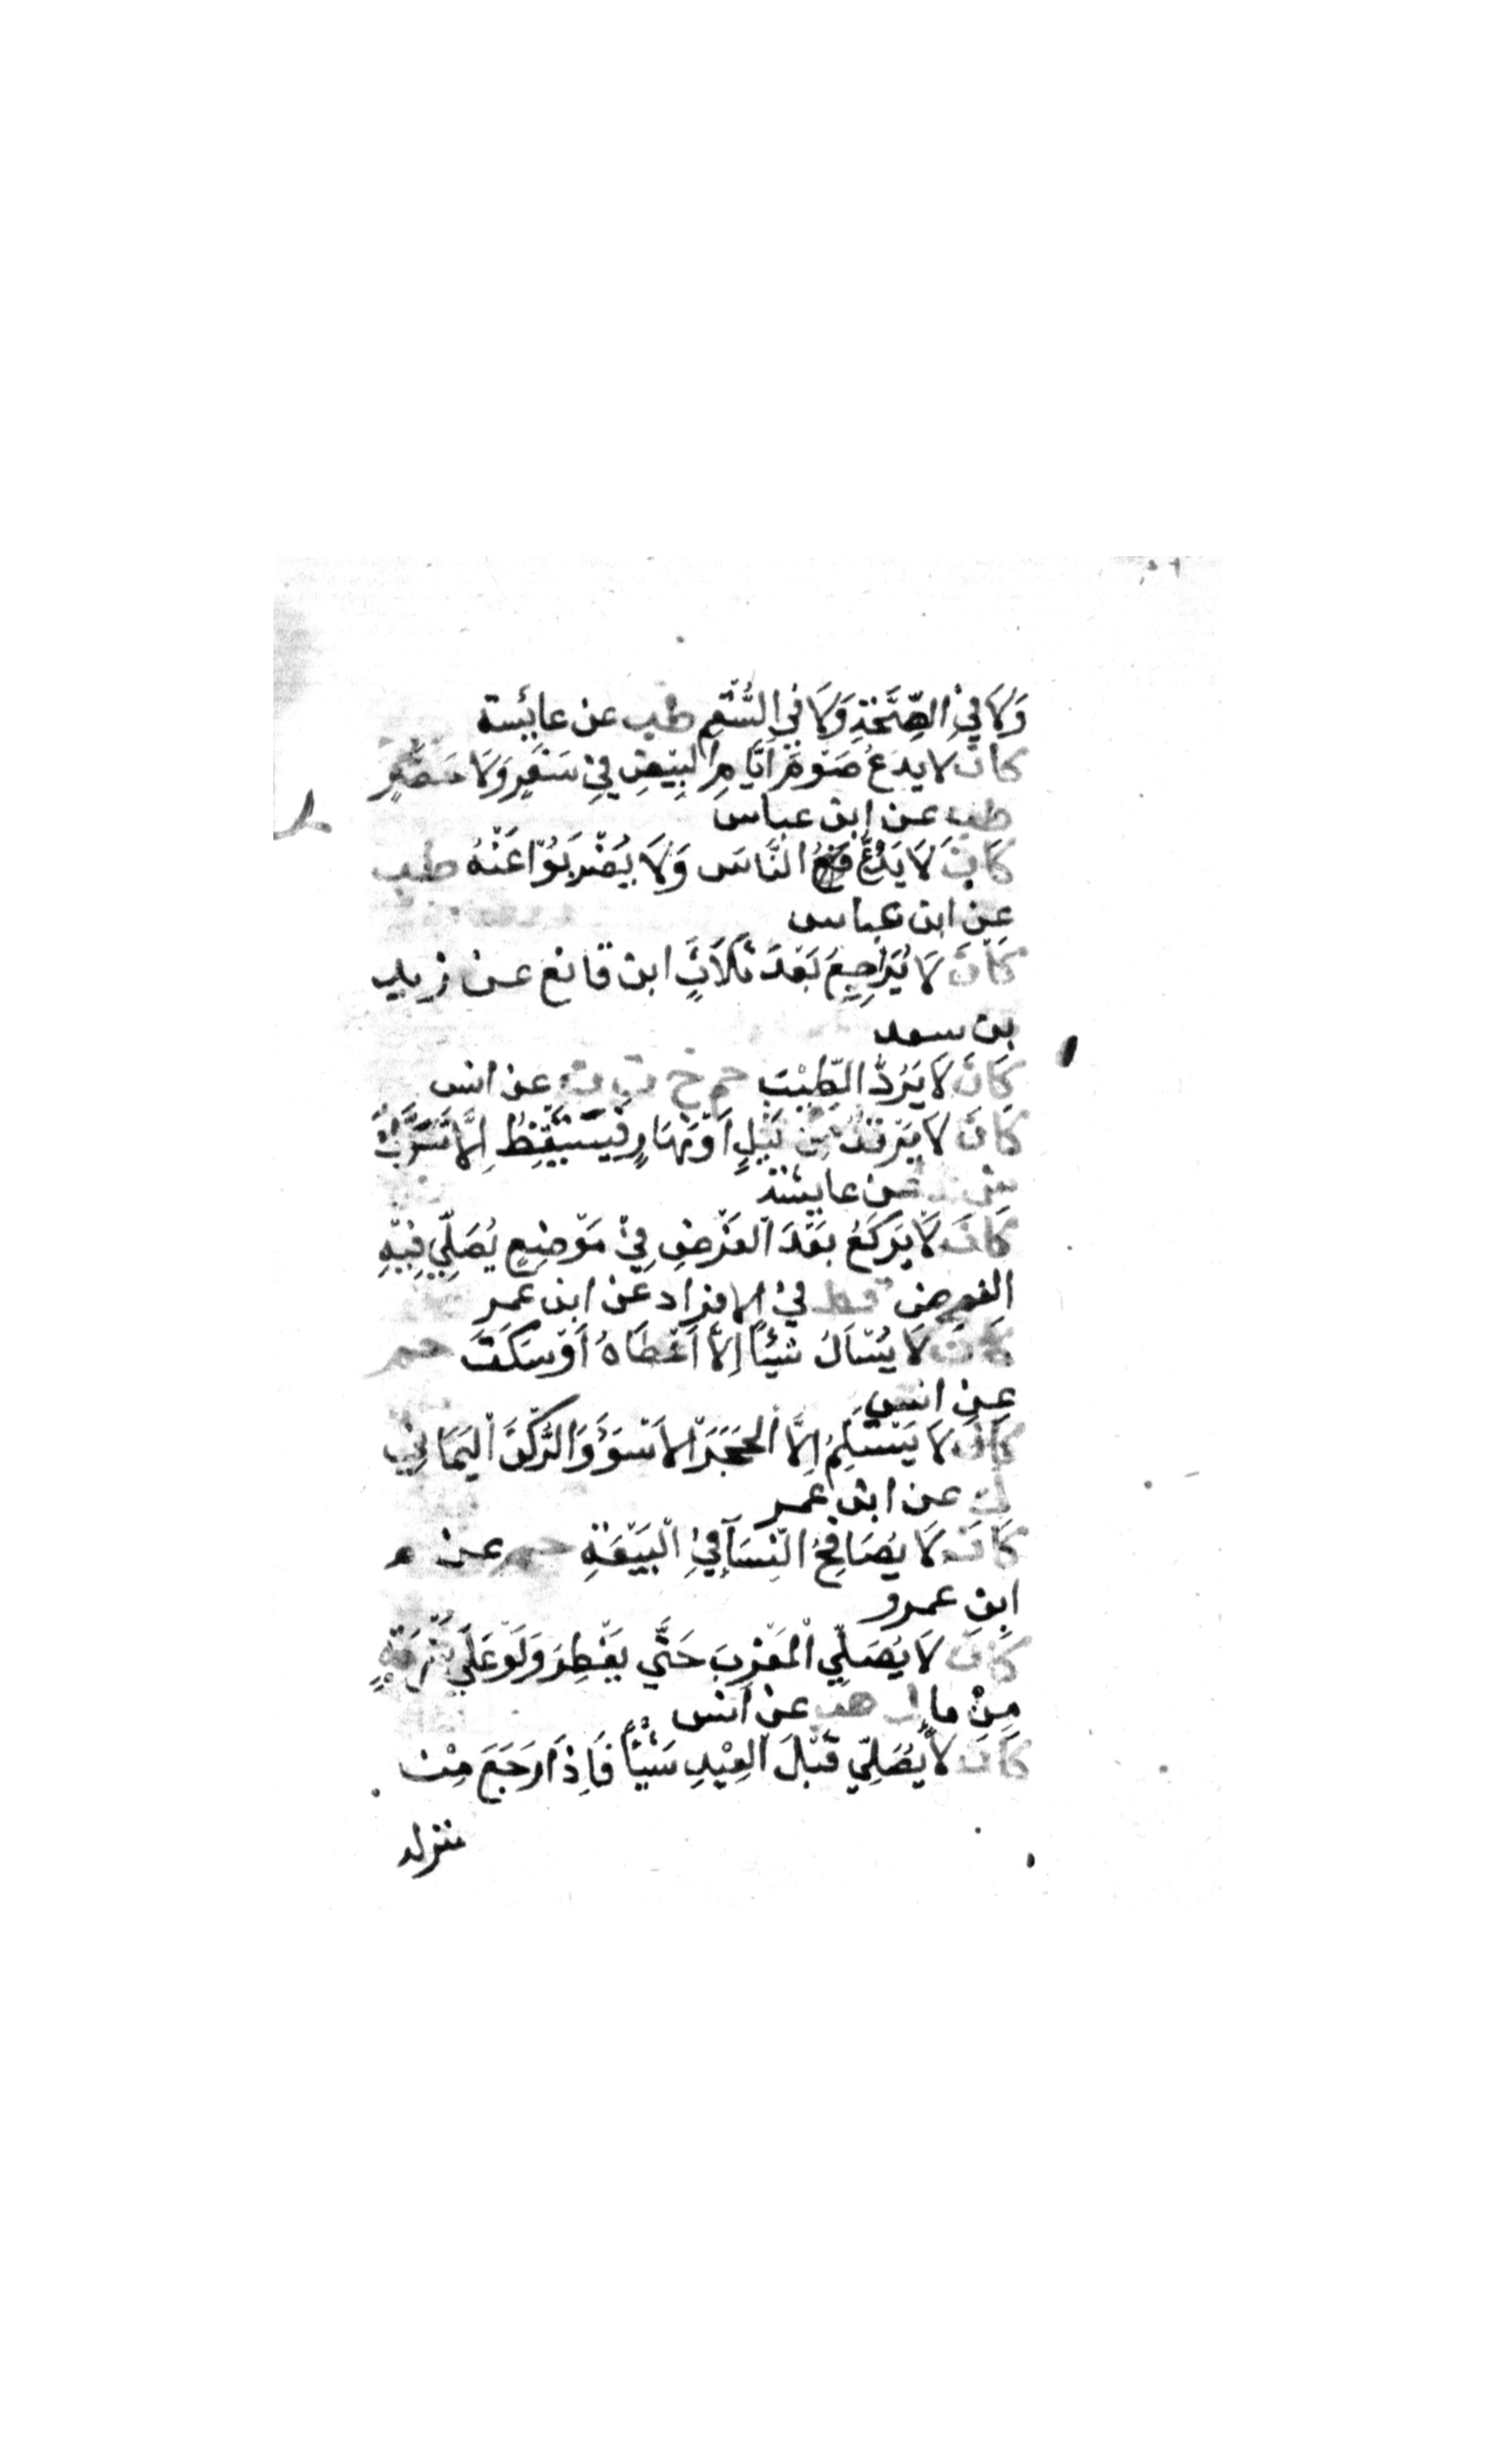 وَلَا فِي الصِّحَّةِ وَلَا فِي السُّقْمِ طب عن عايشة
كان لا يدعُ صَوْمَ أَيَّامِ البِيْضِ فِيْ سَفَرٍ وَلَا حَضَرٍ
طب عن ابن عباس
كَانَ لَا يَدْفَعُ النَّاسَ وَلَا يُضْرَبُوْا عَنْهُ طب
عن ابن عباس
كَانَ لَا يُرَاجِعُ بَعْدَ ثَلَاثٍ ابن قانع عن زيد
بن سعد
كَانَ لَا يَرُدُّ الطِّيْبَ حم خ ت ن عن انس
كَانَ لَا يَرْقُدُ مِنْ لَيْلٍ أَوْ نَهَارٍ فَيَسْتَيْقِظُ اِلَّا تَسَوَّكَ
ش د عن عايشة
كَانَ لَا يَرْكَعُ بَعْدَ الْفَرْضِ فِيْ مَوْضِعٍ يُصَلِّيْ فِيْهِ
الفرض قط في الافراد عن ابن عمر
كان لَا يُسْأَلُ شيْئاً اِلَّا أَعْطَاهُ أَوْ سَكَتَ حم
عن انس
كَانَ لَا يَسْتَلِمُ اِلَّا الْحَجَرَ الاَسْوَدَ وَالرُّكْنَ الْيَمَانِي
ن عن ابن عمر
كَانَ لَا يُصَافِحُ النِّسَآءَ فِيْ الْبَيْعَةِ حم عن
ابن عمرو
كَانَ لَا يُصَلِّي الْمَغْرِبَ حَتَّي يُفْطِرَ وَلَوْ عَلَي شُرْبَةٍ
مِنْ ما ك هب عن انس
كَانَ لَا يُصَلِّيْ قَبْلَ الْعِيْدِ شَيْئاً فَاِذَا رَجَعَ مِنْ
منزله